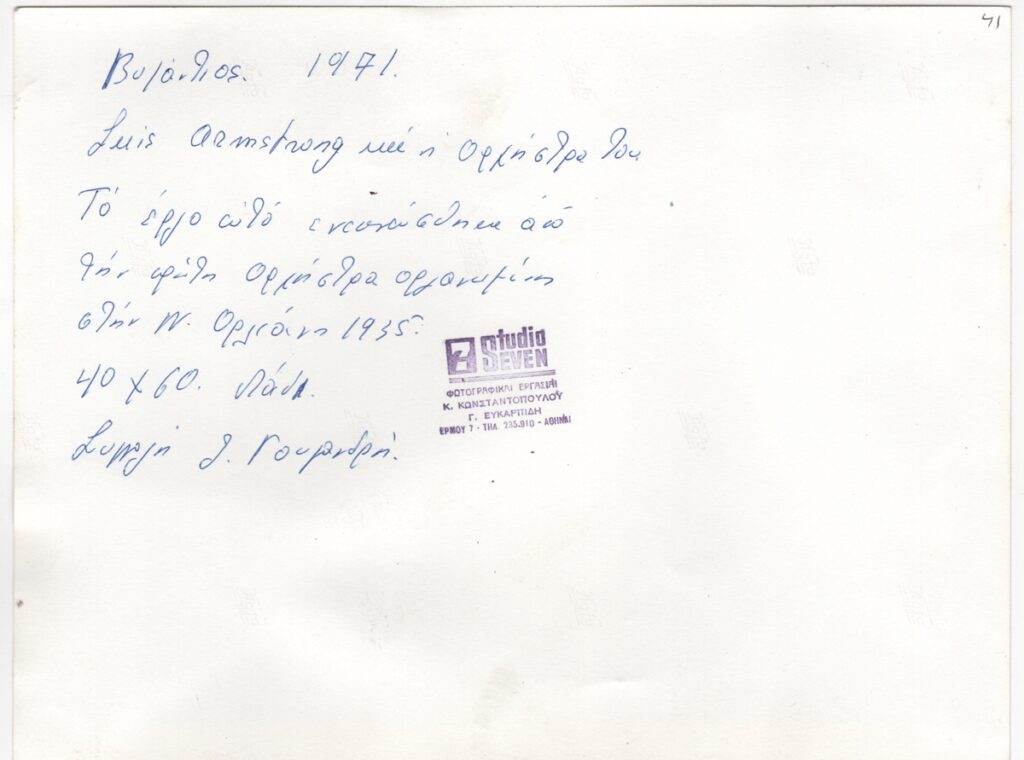 41
Βυζάντιος. 1971.
Luis Armstrong καί η ορχήστρα του
Τό έργο αυτό ενεπνεύσθηκα από
τήν πρώτη ορχήστρα οργανωμένη
στήν Ν. Ορλεάνη 1935.
40 x 60. λάδι.
Συλλογή Γουλανδρή.
7 Studio SEVEN
ΦΩΤΟΓΡΑΦΙΚΑΙ ΕΡΓΑΣΙΑΙ
Κ. ΚΩΝΣΤΑΝΤΟΠΟΥΛΟΥ
Γ. ΕΥΚΑΡΠΙΔΗ
ΕΡΜΟΥ 7 - ΤΗΛ. 235.910 - ΑΘΗΝΑΙ